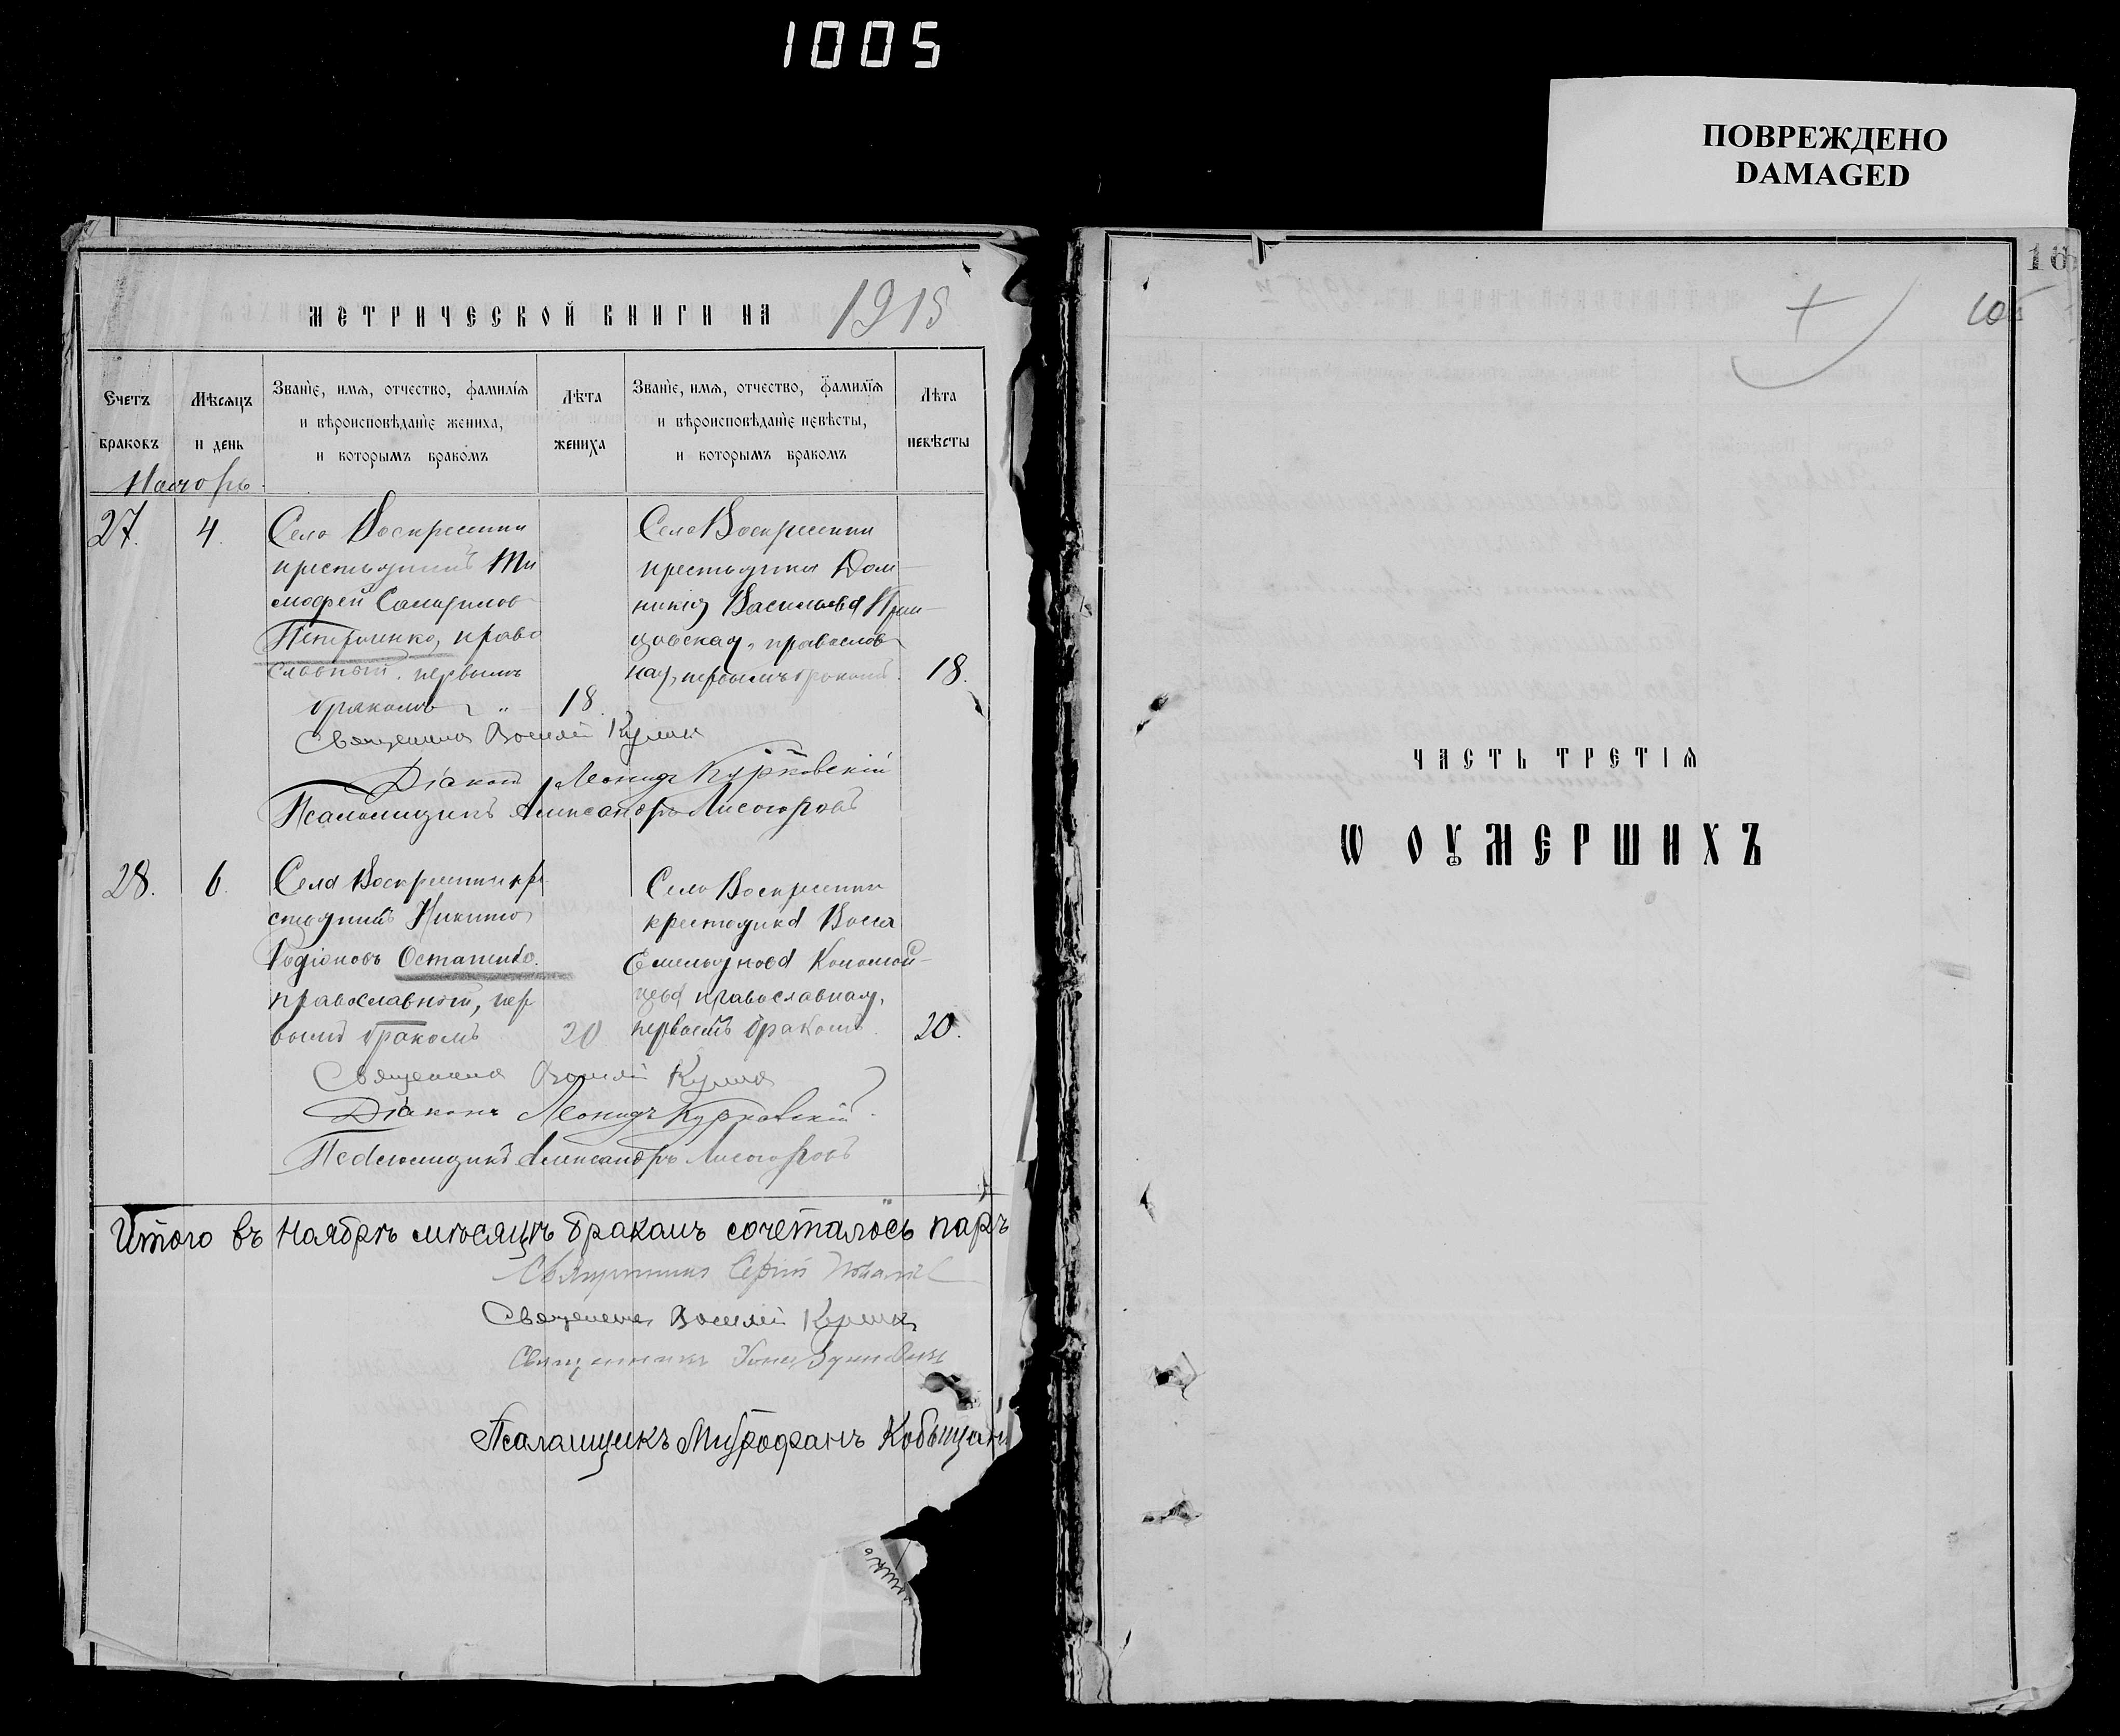 1005
ПОВРЕЖДЕНО
DAMAGED
МЕТРИЧЕСКОЙ КНИГИ НА 1918
Счетъ браковъ
Мѣсяцъ и день
Званїе, имѧ, отчество, фамилїѧ
и вѣроисповѣданїе жениха,
и которымъ бракомъ
Лѣта жениха
Званїе, имѧ, отчество, фамилїѧ
и вѣроисповѣданїе невѣсты,
и которымъ бракомъ
Лѣта невѣсты
27. 4.
Села Воскресенки
крестьянинъ Ти
мофей
Петренко, право
славный, первымъ
бракомъ 18.
Села Воскресенки
крестьянка Дом
никія Васильева
цовская, православ
ная, первымъ бракомъ. 18.
Священникъ Василій
Діаконъ Леонидъ Курковскій
Псаломщикъ Александръ Лисогоровъ
28. 6.
Села Воскресенки кре
стьянинъ Никита
Родіоновъ Остапенко.
православный, пер
вымъ бракомъ 20
Села Воскресенки
крестьянка Васса
Емельянова Коломой
цева православная,
первымъ бракомъ. 20.
Священникъ Василій
Діаконъ Леонидъ Курковскій
Псаломщикъ Александръ Лисогоровъ
Итого въ Ноябрѣ мѣсяцѣ бракомъ сочеталось паръ
Священникъ
Священникъ Василій
Священникъ
Псаломщикъ Митрофанъ
16
ЧАСТЬ ТРЕТІѦ
Ѡ ОУМЕРШИХЪ